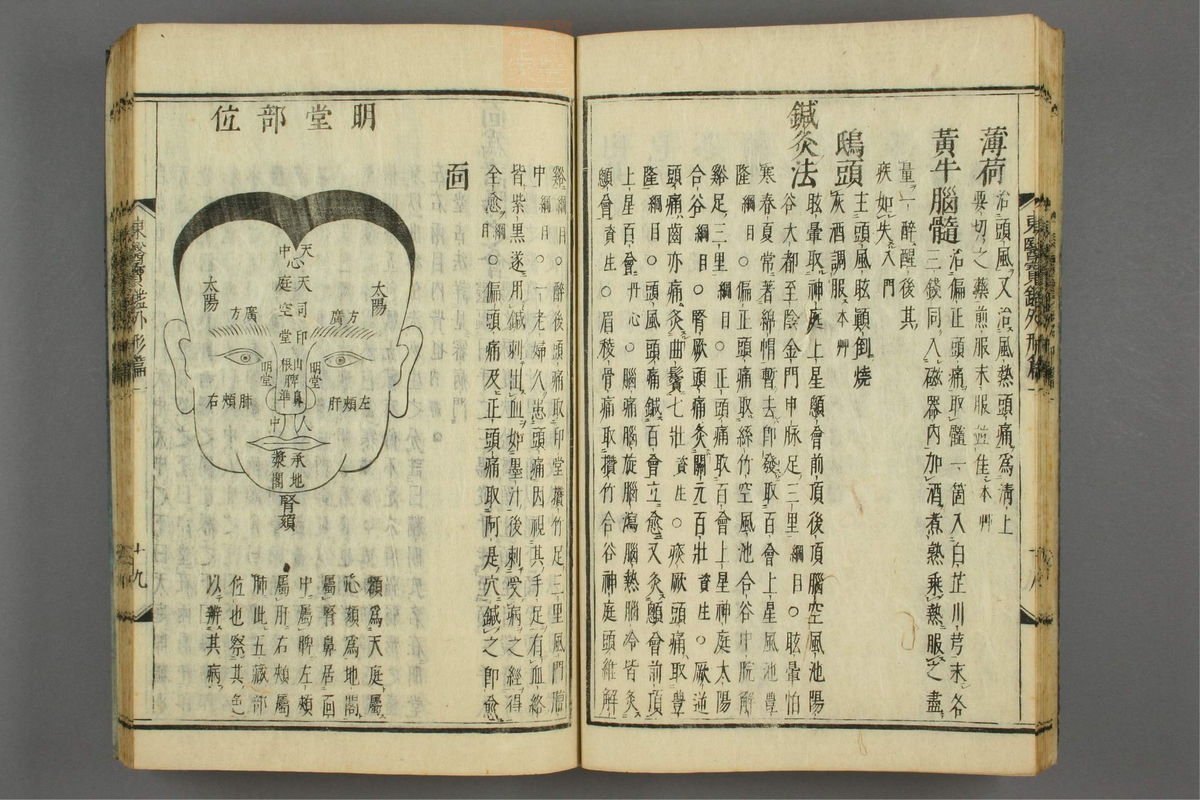 薄荷 治頭風又治風熱頭痛爲淸上
要切之藥煎服末服並佳 本艸
黃牛腦髓 治偏正頭痛取髓一箇入白芷川芎末各
三錢同入磁器內加酒煮熟乘熱服之盡
量一醉醒後其
疾如失 入門
鴟頭 主頭風眩顚倒燒
灰酒調服 本艸
鍼灸法 眩暈取神庭上星顖會前頂後頂腦空風池陽
谷大都至陰金門申脉足三里 綱目○眩暈怕
寒春夏常著綿帽暫去卽發取百會上星風池豊
隆 綱目○偏正頭痛取絲竹空風池合谷中脘解
谿足三里 綱目○正頭痛取百會上星神庭太陽
合谷 綱目○腎厥頭痛灸關元百壯 資生○厥逆
頭痛齒亦痛灸曲鬢七壯 資生○痰厥頭痛取豊
隆 綱目○頭風頭痛鍼百會立愈又灸顖會前頂
上星百會 丹心○腦痛腦旋腦瀉腦熱腦冷皆灸
顖會 資生○眉稜骨痛取攢竹合谷神庭頭維解
東醫寶鑑外形篇一
十八
谿 綱目○醉後頭痛取印堂攢竹足三里風門膻
中 綱目○一老婦久患頭痛因視其手足有血絡
皆紫黑遂用鍼刺出血如墨汁後刺受病之經得
全愈 綱目○偏頭痛及正頭痛取阿是穴鍼之卽愈
面
明堂部位
天中
天庭
司空
印堂
山根
鼻準
人中
承漿
地閣
心
脾
腎頦
太陽
太陽
方廣
方廣
明堂
明堂
左頰肝
右頰肺
額爲天庭屬
心頦爲地閣
屬腎鼻居面
中屬脾左頰
屬肝右頰屬
肺此五藏部
位也察其色
以辨其病
東醫寶鑑外形篇一
十九